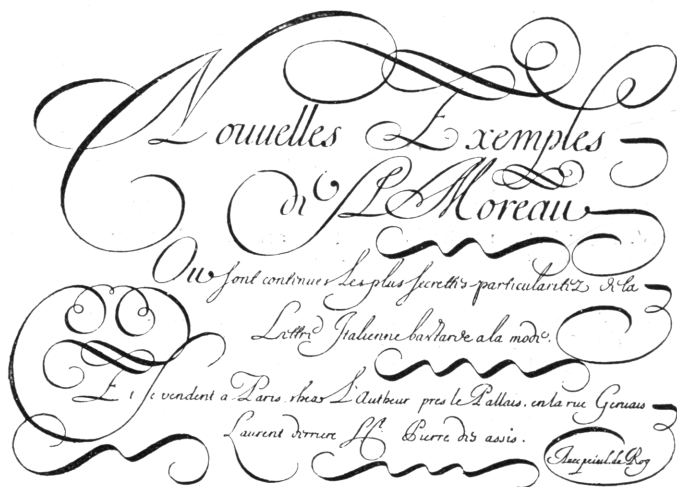 Nouuelles Exemples
de Sr Moreau
Ou sont contenues Les plus secrettes particularitez de la
Lettre Italienne bastarde a la mode.
Et se vendent a Paris chez L'Autheur pres le Pallais. en la rue Geruais
Laurent derriere St. Pierre des assis.
Auec priuil. du Roy